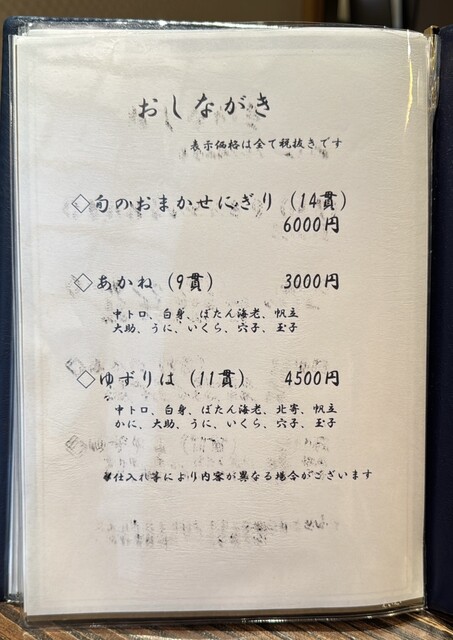 おしながき
表示価格は全て税抜きです
◇旬のおまかせにぎり（14貫）
6000円
◇あかね（9貫） 3000円
中トロ、白身、ぼたん海老、帆立
大助、うに、いくら、穴子、玉子
◇ゆずりは（11貫） 4500円
中トロ、白身、ぼたん海老、北寄、帆立
かに、大助、うに、いくら、穴子、玉子
※仕入れ等により内容が異なる場合がございます